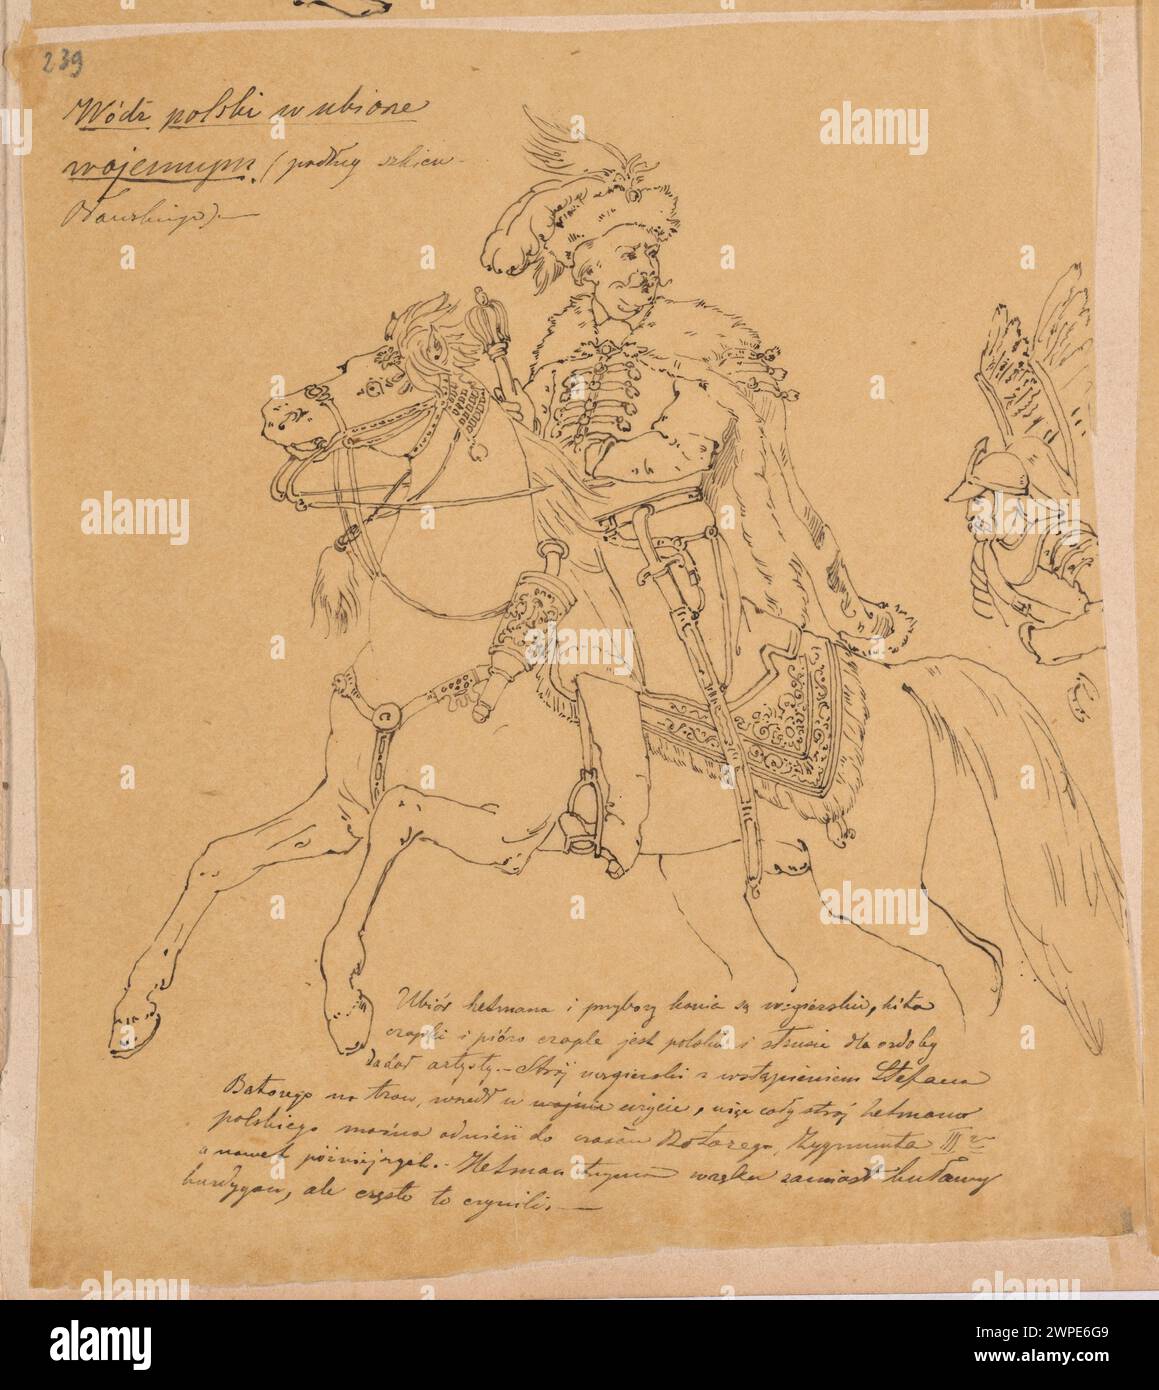 239
Wódz polski w ubiorze
wojennym. (podług szkicu
Ubiór hetmana i przybory konia są węgierskie, kita
czapki i pióro czaple jest polskie i strusie dla ozdoby
dodał artysty. – Strój węgierski z wstąpieniem Stefana
Batorego na tron, wszedł w użycie, więc cały strój hetmana
polskiego można odnieść do czasów Batorego, Zygmunta III
a nawet późniejszych. – Hetman trzyma w ręku zamiast buławy
burdygan, ale często to czynili. —
alamy
Image ID: 2WPE6G9
www.alamy.com